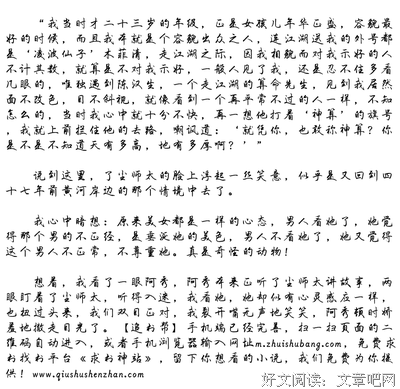 “我当时才二十三岁的年级，正是女孩儿年华正盛，容貌最
好的时候，而且我本就是个容貌出众之人，连江湖送我的外号都
是‘凌波仙子’木菲清，走江湖之际，因我相貌而对我示好的人
不计其数，就算是不对我示好，一般人见了我，还是忍不住多看
几眼的，唯独遇到陈汉生，一个走江湖的算命先生，见到我居然
面不改色，目不斜视，就像看到一个再平常不过的人一样，不知
怎么的，当时我心中就十分不快，再一想他打着‘神算’的旗号
，我就上前拦住他的去路，嘲讽道：‘就凭你，也敢称神算？你
是不是不知道天有多高，地有多厚啊？’”
说到这里，了尘师太的脸上浮起一丝笑意，似乎是又回到四
十七年前黄河岸边的那个情境中去了。
我心中暗想：原来美女都是一样的心态，男人看她了，她觉
得那个男的不正经，是垂涎她的美色，男人不看她了，她又觉得
这个男人不正常，不尊重她。真是奇怪的动物！
想着，我看了一眼阿秀，阿秀本来正听了尘师太讲故事，两
眼盯着了尘师太，听得入迷，我看她，她却似有心灵感应一样，
也扭过头来，我们双目正对，我裂开嘴无声地笑笑，阿秀顿时娇
羞地撇走目光了。【追书帮】手机端已经完善，扫一扫页面的二
维码自动进入，或者手机浏览器输入网址m.zhuishubang.com，免费求
书找书平台《求书神站》，留下你想看的小说，我们免费为你提
供！www.qiushushenzhan.com
好文阅读：文章吧网